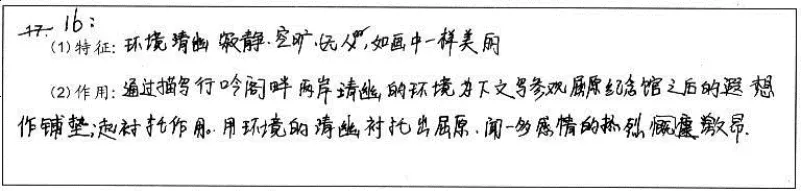 17. 16:
(1)特征:环境清幽 寂静.空旷.无人,如画中一样美丽
(2)作用:通过描写行吟阁畔两岸清幽的环境为下文写参观屈原纪念馆之后的遐想
作铺垫;起衬托作用。用环境的清幽衬托出屈原.闻一多感情的热烈慷慨激昂.